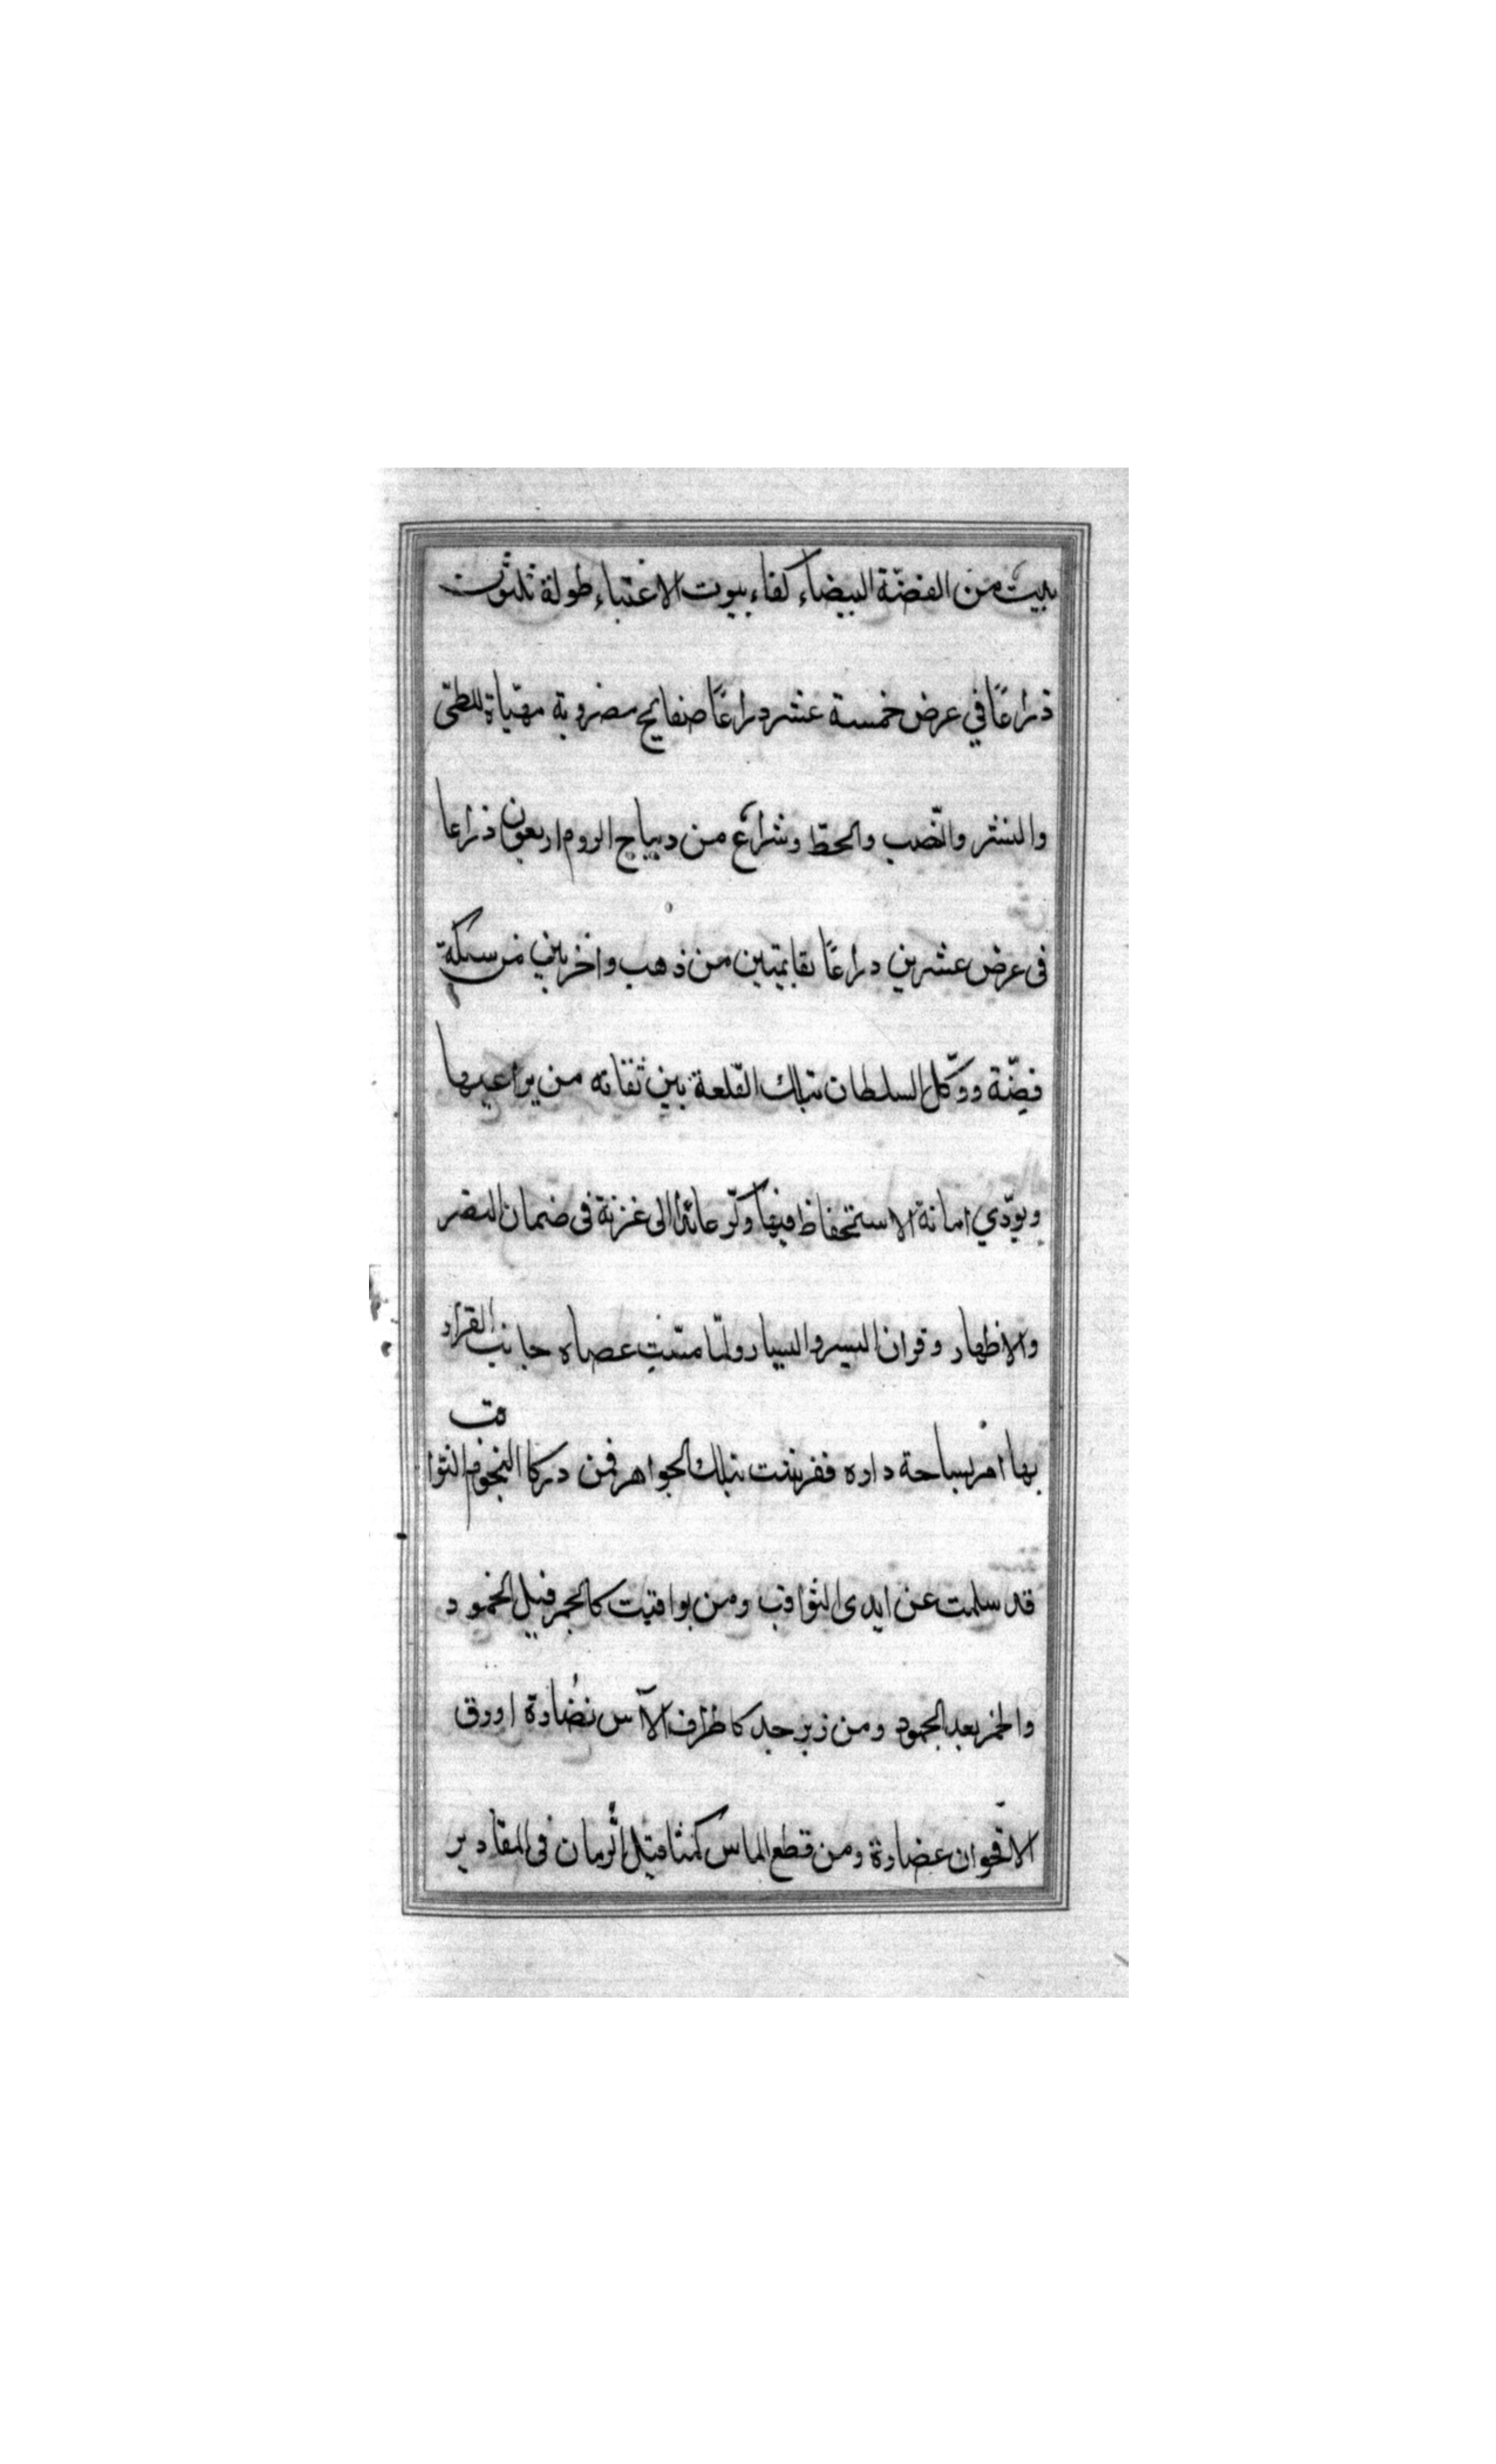 بيت من الفضّة البيضاء كفاء بيوت الاغنياء طولة ثلثون
ذراعًا في عرض خمسة عشر دراعًا صفايح مضروبة مهيّاة للطىّ
والنشر والنّصب والحطّ وشراع من ديباج الروم اربعون ذراعا
فى عرض عشرين دراعًا بقايمتين من ذهب واخريين من سبكة
فضّة ووكّل السلطان بتلك القلعة بين ثقاته من يراعيها
ويودّي امانة الاستحفاظ فيها وكرّ عائدًا الى غزنة فى ضمان النصر
والاظهار وقران اليسر واليسار ولمّا مسّت عصاه جانب القرار
بها امر بساحة داره ففرشت بتلك الجواهر فمن درر كالنجوم الثواقب
قد سلمت عن ايدى الثواقب ومن يواقيت كالجمر قبل الخمود
والخمر بعد الجمود ومن زبرجد كاطراف الآس نضارة اوورق
الاقحوان غضارة ومن قطع الماس كمثاقيل الرّمان فى المقادير